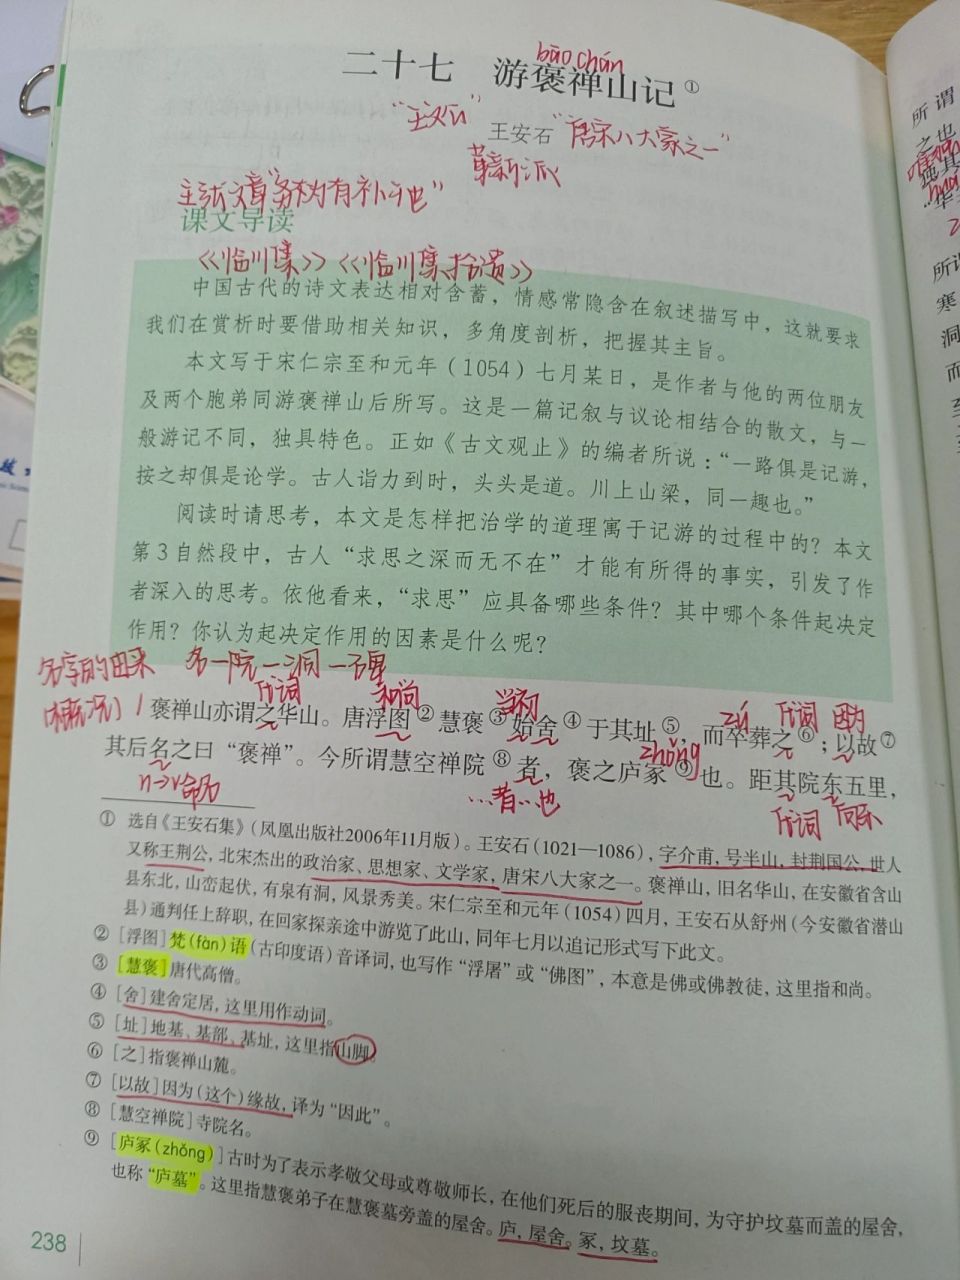 bāo chán
二十七 游褒禅山记①
“王文公”
王安石 “唐宋八大家之一”
革新派
主张文章“务为有补于世”
课文导读
《临川集》《临川集拾遗》
中国古代的诗文表达相对含蓄，情感常隐含在叙述描写中，这就要求
我们在赏析时要借助相关知识，多角度剖析，把握其主旨。
本文写于宋仁宗至和元年（1054）七月某日，是作者与他的两位朋友
及两个胞弟同游褒禅山后所写。这是一篇记叙与议论相结合的散文，与一
般游记不同，独具特色。正如《古文观止》的编者所说：“一路俱是记游，
按之却俱是论学。古人诣力到时，头头是道。川上山梁，同一趣也。”
阅读时请思考，本文是怎样把治学的道理寓于记游的过程中的？本文
第3自然段中，古人“求思之深而无不在”才能有所得的事实，引发了作
者深入的思考。依他看来，“求思”应具备哪些条件？其中哪个条件起决定
作用？你认为起决定作用的因素是什么呢？
名字的由来 名一院一洞一碑
代词 和尚 当初 zú 代词 因为
（概况）1 褒禅山亦谓之华山。唐浮图②慧褒③始舍④于其址⑤，而卒葬之⑥；以故⑦
zhǒng
其后名之曰“褒禅”。今所谓慧空禅院⑧者，褒之庐冢⑨也。距其院东五里，
n→v命名 …者…也 代词 向东
① 选自《王安石集》（凤凰出版社2006年11月版）。王安石（1021—1086），字介甫，号半山，封荆国公，世人
又称王荆公，北宋杰出的政治家、思想家、文学家，唐宋八大家之一。褒禅山，旧名华山，在安徽省含山
县东北，山峦起伏，有泉有洞，风景秀美。宋仁宗至和元年（1054）四月，王安石从舒州（今安徽省潜山
县）通判任上辞职，在回家探亲途中游览了此山，同年七月以追记形式写下此文。
② [浮图]梵（fàn）语（古印度语）音译词，也写作“浮屠”或“佛图”，本意是佛或佛教徒，这里指和尚。
③ [慧褒]唐代高僧。
④ [舍]建舍定居，这里用作动词。
⑤ [址]地基、基部、基址，这里指山脚。
⑥ [之]指褒禅山麓。
⑦ [以故]因为（这个）缘故，译为“因此”。
⑧ [慧空禅院]寺院名。
⑨ [庐冢（zhǒng）]古时为了表示孝敬父母或尊敬师长，在他们死后的服丧期间，为守护坟墓而盖的屋舍，
也称“庐墓”。这里指慧褒弟子在慧褒墓旁盖的屋舍。庐，屋舍。冢，坟墓。
238
所谓
之也
所谓
寒
洞
而
至